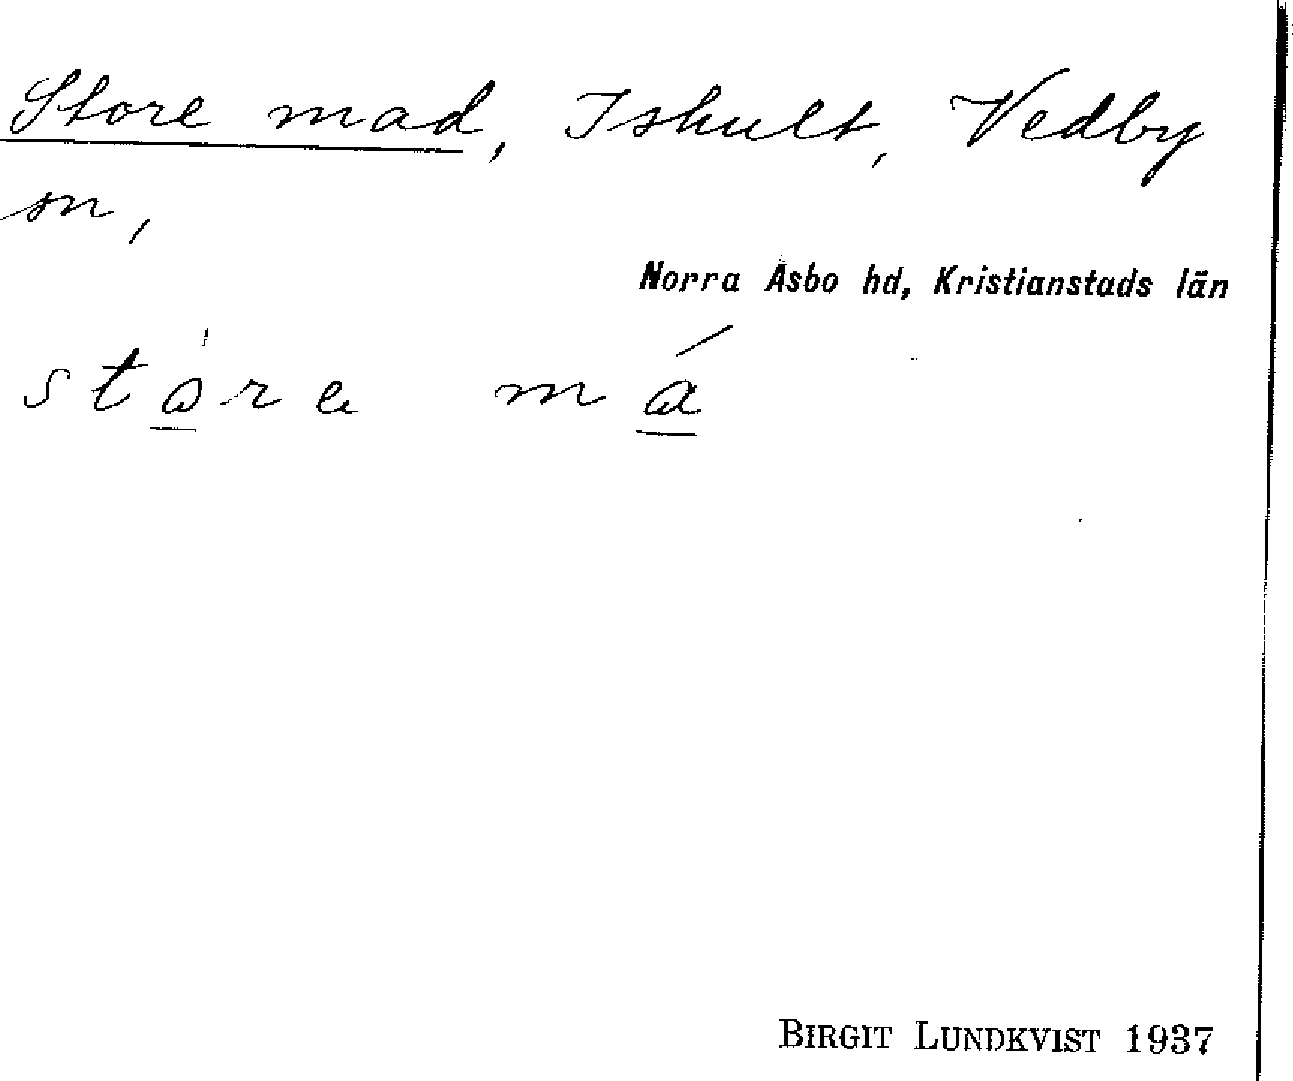 Store mad, Ishult, Vedby
sn,
Norra Åsbo hd, Kristianstads län
stóre má
BIRGIT LUNDKVIST 1937